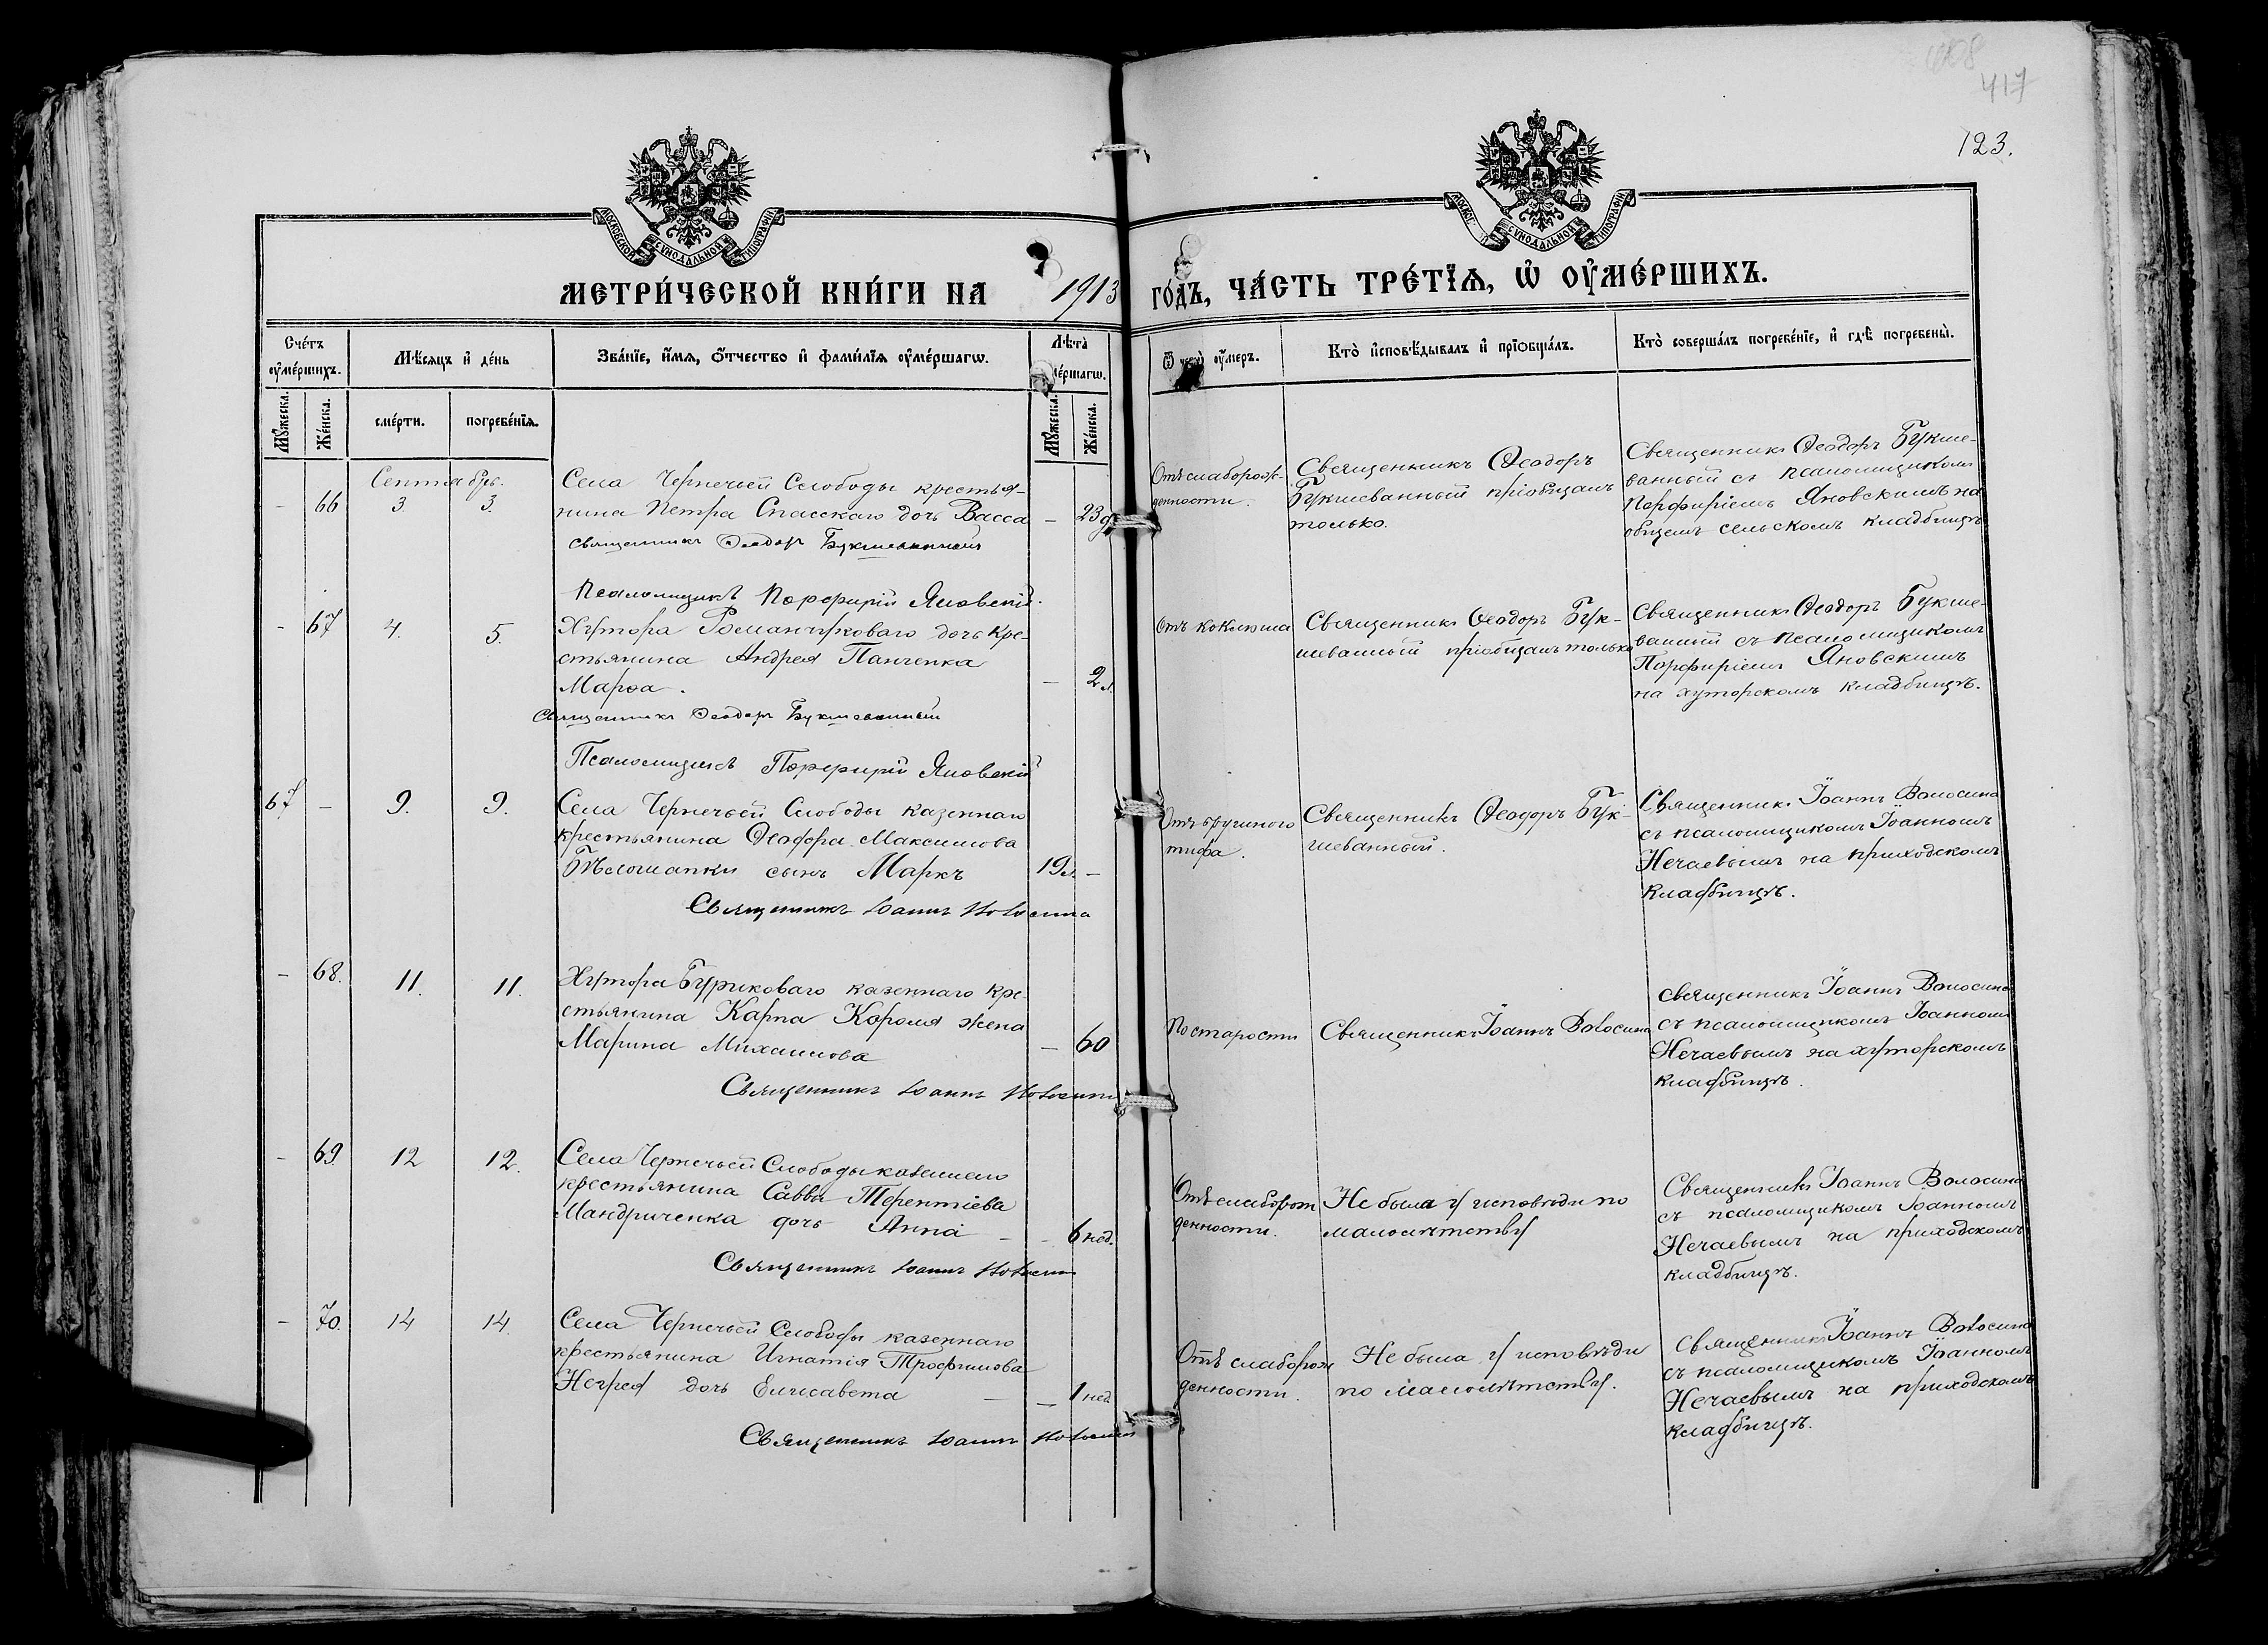 417
123.
МОСКОВСКОЙ СѴНОДАЛЬНОЙ ТИПОГРАФІИ
МОСКОВ СѴНОДАЛЬНОЙ ТИПОГРАФІИ
МЕТРИ́ЧЕСКОЙ КНИ́ГИ НА 1913 ГО́ДЪ, ЧА́СТЬ ТРЕ́ТЇѦ, Ѡ҆ ОУ҆МЕ́РШИХЪ.
Сче́тъ оу҆ме́ршихъ.
Мѣ́сяцъ и҆ де́нь
Зва́нїе, и҆́мѧ, ѻ҆́тчество и҆ фами́лїѧ оу҆ме́ршагѡ.
Лѣ́та ме́ршагѡ.
Ѿ чегѡ̀ оу҆́меръ.
Кто̀ и҆сповѣ́дывалъ и҆ прїѡбща́лъ.
Кто̀ соверша́лъ погребе́нїе, и҆ гдѣ̀ погребены̀.
Мꙋ́жеска.
Же́нска.
сме́рти.
погребе́нїѧ.
Мꙋ́жеска.
Же́нска.
Сентябрь.
- 66 3. 3.
Села Чернечьей Слободы крестья-
нина Петра Спасскаго дочь Васса
- 23 д
Священникъ Ѳеодоръ Букшеванный
Псаломщикъ Порфирій Яновскій.
Отъ слаборож-
денности.
Священникъ Ѳеодоръ
Букшеванный пріобщалъ
только.
Священникъ Ѳеодоръ Букше-
ванный съ псаломщикомъ
Порфиріемъ Яновскимъ на
общемъ сельскомъ кладбищѣ
- 67 4. 5.
Хутора Романчуковаго дочь кре-
стьянина Андрея Панченка
Марѳа.
- 2 л.
Священникъ Ѳеодоръ Букшеванный
Псаломщикъ Порфирій Яновскій
Отъ коклюша
Священникъ Ѳеодоръ Бук-
шеванный пріобщалъ только
Священникъ Ѳеодоръ Букше-
ванный съ псаломщикомъ
Порфиріемъ Яновскимъ
на хуторскомъ кладбищѣ.
67 - 9. 9.
Села Чернечьей Слободы казеннаго
крестьянина Ѳеодора Максимова
Бѣлошапки сынъ Маркъ
19 л. -
Священникъ Іоаннъ Волосина
Отъ брушного
тифа.
Священникъ Ѳеодоръ Бук-
шеванный.
Священникъ Іоаннъ Волосина
съ псаломщикомъ Іоанномъ
Нечаевымъ на приходскомъ
кладбищѣ.
- 68. 11. 11.
Хутора Буриковаго казеннаго кре-
стьянина Карпа Короля жена
Марина Михаилова
- 60
Священникъ Іоаннъ Волосина
По старости
Священникъ Іоаннъ Волосина
Священникъ Іоаннъ Волосина
съ псаломщикомъ Іоанномъ
Нечаевымъ на хуторскомъ
кладбищѣ.
- 69. 12 12.
Села Чернечьей Слободы казеннаго
крестьянина Саввы Терентіева
Мандриченка дочь Анна
- - 6 нед.
Священникъ Іоаннъ Волосина
Отъ слаборож
денности.
Не была у исповѣди по
малолѣтству
Священникъ Іоаннъ Волосина
съ псаломщикомъ Іоанномъ
Нечаевымъ на приходскомъ
кладбищѣ.
- 70. 14 14.
Села Чернечьей Слободы казеннаго
крестьянина Игнатія Трофимова
Негрея дочь Елисавета
- - 1 нед
Священникъ Іоаннъ Волосина
Отъ слаборож
денности.
Не была у исповѣди
по малолѣтству.
Священникъ Іоаннъ Волосина
съ псаломщикомъ Іоанномъ
Нечаевымъ на приходскомъ
кладбищѣ.